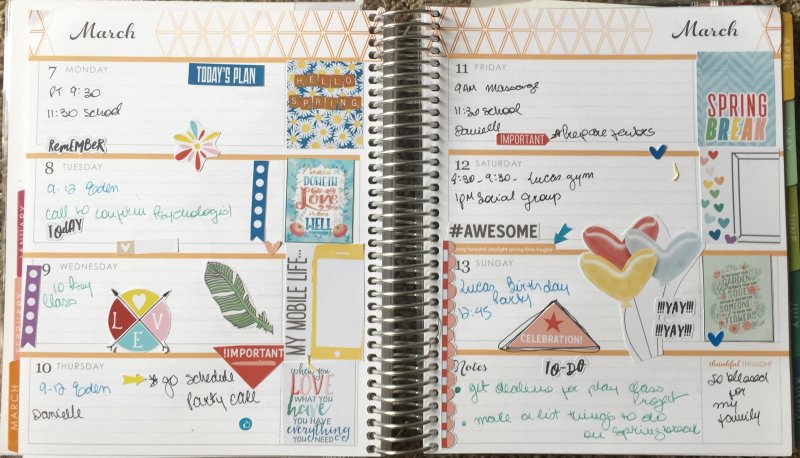 March
7 MONDAY
TODAY'S PLAN
PT 9:30
11:30 school
RemEMBER
HELLO
SPRING
8 TUESDAY
9-12 Eden
call to confirm Psychologist
TODAY
DONE IN
Love
WELL
9 WEDNESDAY
10 Day
Class
LOVE
MY MOBILE LIFE...
10 THURSDAY
9-12 Eden
go schedule
Party call
Danielle
!IMPORTANT
when you
LOVE
WHAT YOU
have
YOU HAVE
everything
YOU NEED
JANUARY
FEBRUARY
MARCH
March
11 FRIDAY
9AM Massage
11:30 school
Danielle
IMPORTANT
SPRING
BREAK
12 SATURDAY
8:30 - 9:30 - Lucas gym
1PM Social group
#AWESOME
daylight saving time begins
13 SUNDAY
Lucas Birthday
Party
12:45
CELEBRATION!
!!!YAY!!!
!!!YAY!!!
GARDEN
SOUL
SOMEONE
Notes
TO-DO
• get for play class
Project
• make a list things to do
on Springbreak
thankful THOUGHT
So blessed
for
my
family
APRIL
MAY
JUNE
JULY